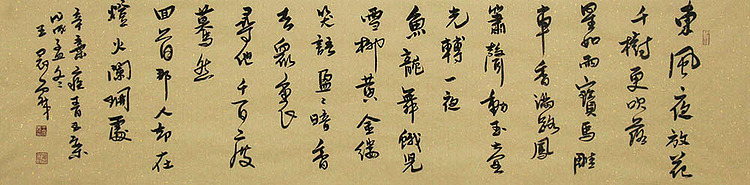 東風夜放花
千樹更吹落
星如雨寶馬雕
車香滿路鳳
簫聲動玉壺
光轉一夜
魚龍舞蛾兒
雪柳黃金縷
笑語盈盈暗香
去眾裏
尋他千百度
驀然
回首那人卻在
燈火闌珊處
辛棄疾青玉案
孟冬
王